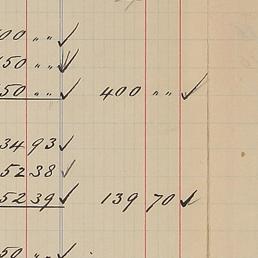 00 " " ✓
50 " " ✓
50 " " ✓ 400 " " ✓
34 93 ✓
52 38 ✓
52 39 ✓ 139 70 ✓
50 " " ✓